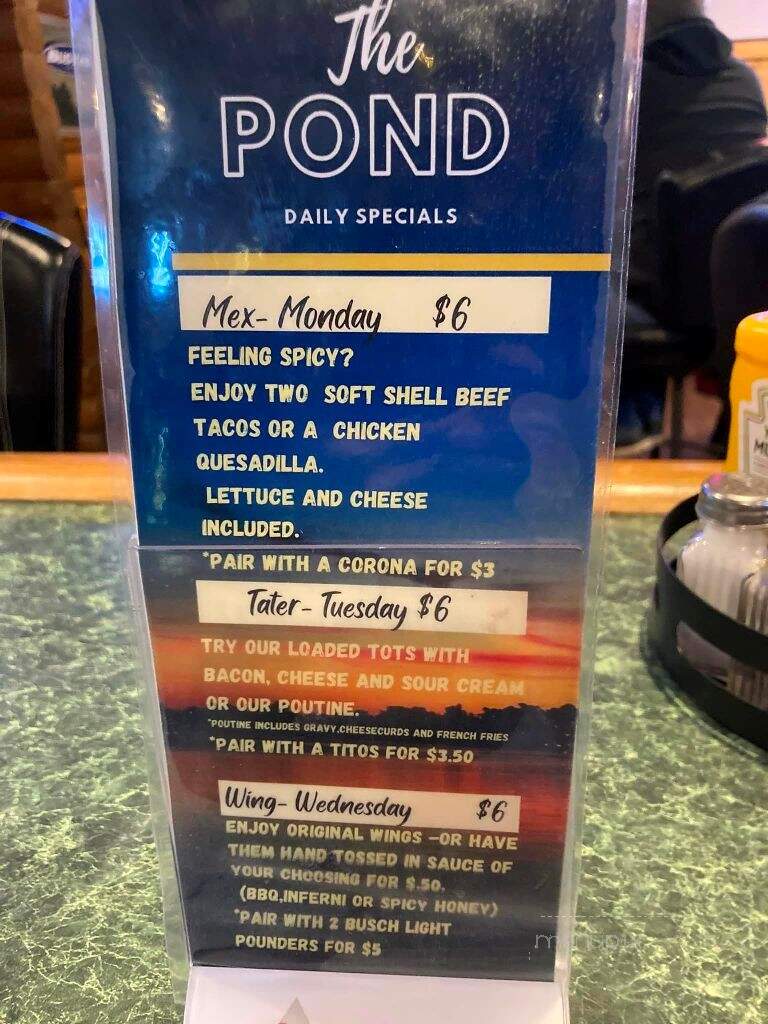 The
POND
DAILY SPECIALS
Mex- Monday $6
FEELING SPICY?
ENJOY TWO SOFT SHELL BEEF
TACOS OR A CHICKEN
QUESADILLA.
LETTUCE AND CHEESE
INCLUDED.
*PAIR WITH A CORONA FOR $3
Tater- Tuesday $6
TRY OUR LOADED TOTS WITH
BACON, CHEESE AND SOUR CREAM
OR OUR POUTINE.
*POUTINE INCLUDES GRAVY,CHEESECURDS AND FRENCH FRIES
*PAIR WITH A TITOS FOR $3.50
Wing- Wednesday $6
ENJOY ORIGINAL WINGS -OR HAVE
THEM HAND TOSSED IN SAUCE OF
YOUR CHOOSING FOR $.50.
(BBQ,INFERNI OR SPICY HONEY)
*PAIR WITH 2 BUSCH LIGHT
POUNDERS FOR $5